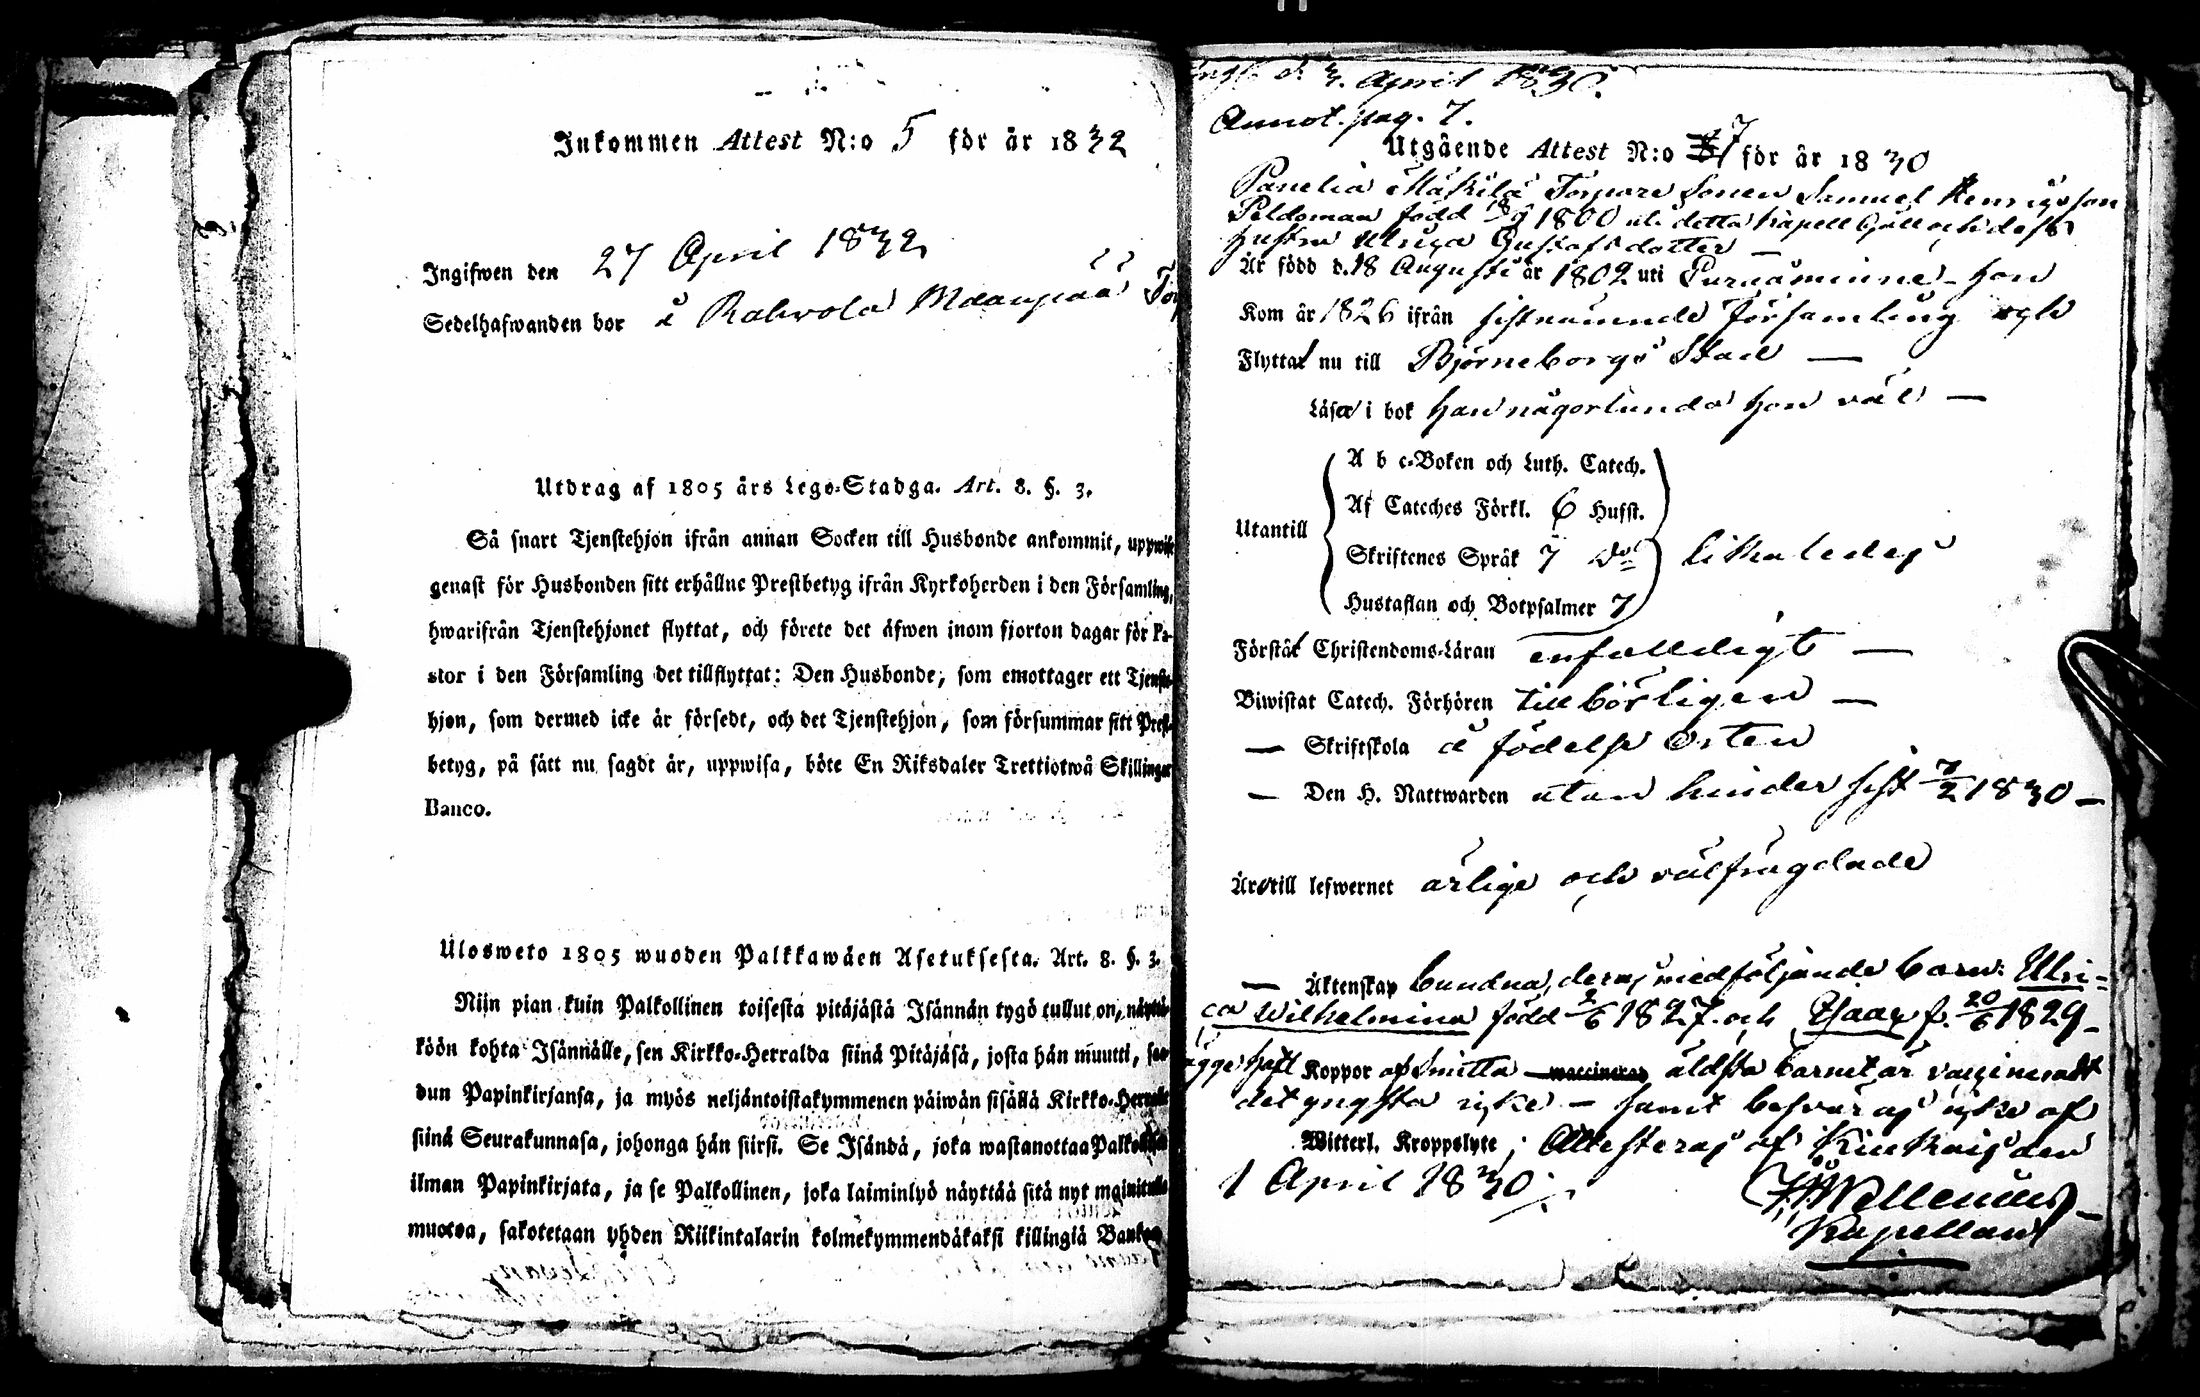 Inkommen Attest N:o 5 för år 1832
Ingifwen den 27 April 1832
Sedelhafwanden bor å Rahvola Maanpää
Utdrag af 1805 års Lego-Stadga. Art. 8. §. 3.
Så snart Tjenstehjon ifrån annan Socken till Husbonde ankommit, uppwise
genast för Husbonden sitt erhållne Prestbetyg ifrån Kyrkoherden i den Församling,
hwarifrån Tjenstehjonet flyttat, och förete det äfwen inom fjorton dagar för Pa-
stor i den Församling det tillflyttat: Den Husbonde, som emottager ett Tjenste-
hjon, som dermed icke är försedt, och det Tjenstehjon, som försummar sitt Prest-
betyg, på sätt nu sagdt är, uppwisa, böte En Riksdaler Trettiotwå Skillingar
Banco.
Ulosweto 1805 wuoden Palkkawäen Asetuksesta. Art. 8. §. 3.
Niin pian kuin Palkollinen toisesta pitäjästä Isännän tygö tullut on, näyttä-
köön kohta Isännälle, sen Kirkko-Herralda siinä Pitäjäsä, josta hän muutti, saa-
dun Papinkirjansa, ja myös neljäntoistakymmenen päiwän sisällä Kirkko-Herralle
siinä Seurakunnasa, johonga hän siirsi. Se Isändä, joka wastanottaa Palkollisen
ilman Papinkirjata, ja se Palkollinen, joka laiminlyö näyttää sitä nyt mainitulla
muotoa, sakotetaan yhden Riikintalarin kolmekymmendäkaksi killingiä Bankos
d. 3. April 1830.
Annot. pag. 7.
Utgående Attest N:o 7 för år 1830
Panelia Mäkilä Torpare Sonen Samuel Henricsson
Peldoman född 1800 uti detta Kapell Gäll och dess
hustru Ulrica Gustafsdotter —
Är född d. 18 Augusti år 1802 uti Punaminne - hon
Kom år 1826 ifrån sistnämnde Församling och
Flytta nu till Björneborgs Stad —
Läsa i bok han någorlunda hon väl —
A b c-Boken och Luth. Catech.
Af Cateches Förkl. 6 Hufst.
Utantill Skriftenes Språk 7 Do likaledes
Hustaflan och Botpsalmer 7
Förstå Christendoms-Läran enfalldigt —
Biwistat Catech. Förhören tillbörligen —
— Skriftskola å födelse Orten
— Den H. Nattwarden utan hinder sist 7/2 1830 —
Äro till lefwernet ärlige och välfrägdade
— Äktenskap bundna, deras medföljande barn: Ulri-
ca Wilhelmina född 2/6 1827. och Isaac f. 20/6 1829 —
haft Koppor af Smitta äldsta barnet är vaccineradt
det yngsta icke — samt besväras icke af
Witterl. Kroppslyte; Attesteras af Kiukais den
1 April 1830.
Kapellan